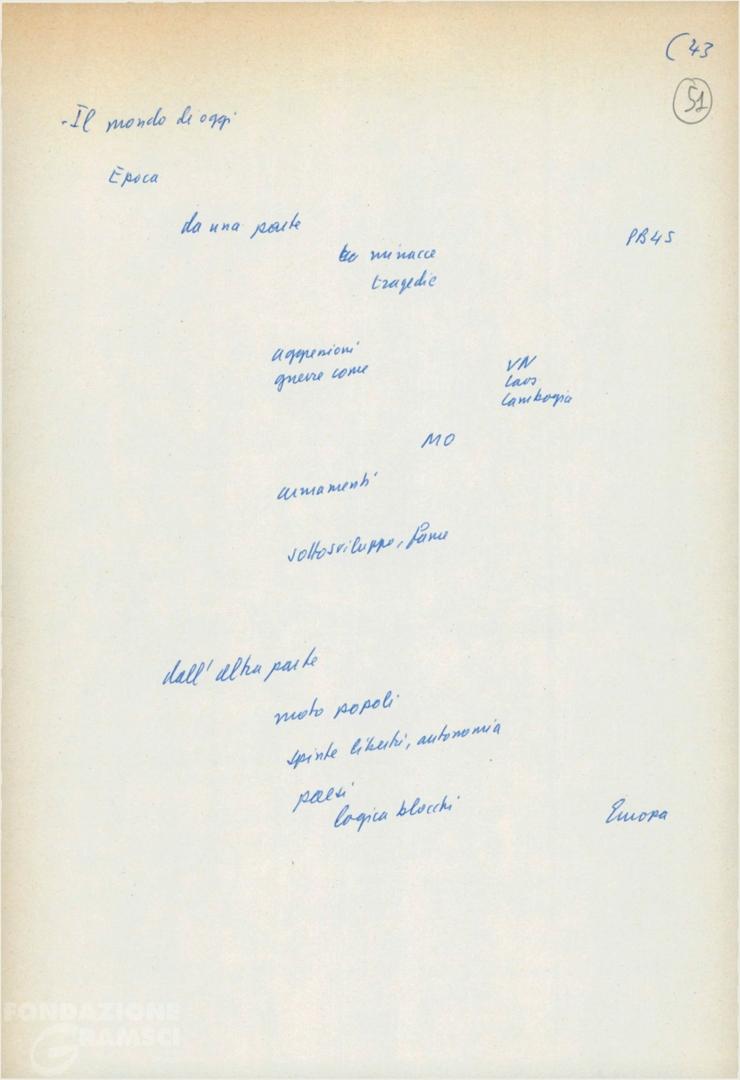 (43
51
- Il mondo di oggi
Epoca
da una parte
PB45
minacce
tragedie
aggressioni
guerre come
VN
Laos
Cambogia
MO
armamenti
sottosviluppo, fame
dall'altra parte
moto popoli
spinte libertà, autonomia
paesi
logica blocchi
Europa
FONDAZIONE
GRAMSCI